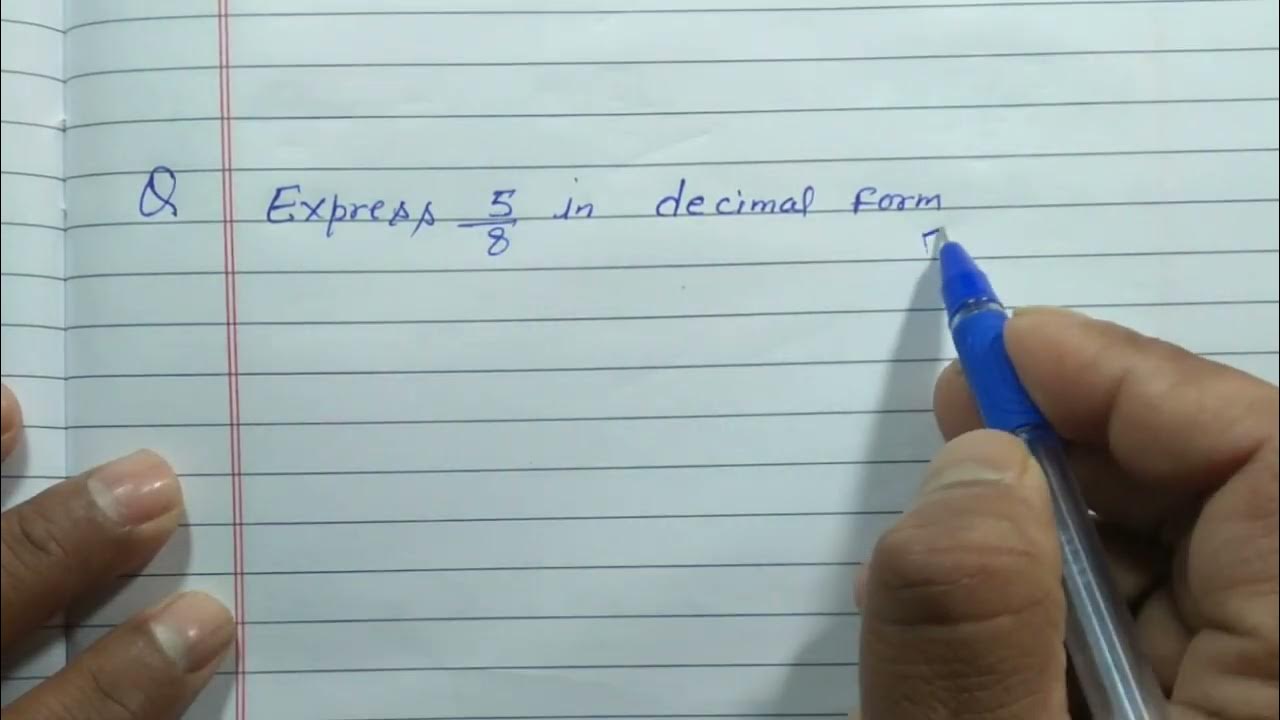 Q Express 5/8 in decimal form